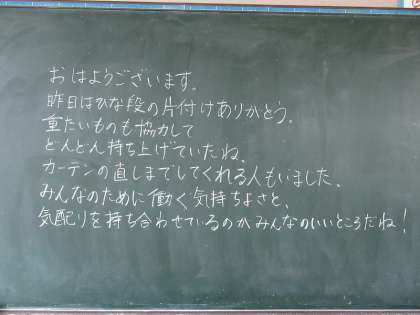 おはようございます。
昨日はひな段の片付けありがとう。
重たいものも協力して
どんどん持ち上げていたね。
カーテンの直しまでしてくれる人もいました。
みんなのために働く気持ちよさと、
気配りを持ち合わせているのがみんなのいいところだね！